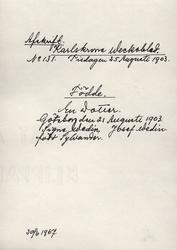 Afskrift.
Karlskrona Weckoblad.
No 151. Tisdagen 25 Augusti 1903.
Födde.
En Dotter.
Göteborg den 21 Augusti 1903.
Signe Wedin Josef Wedin
född Sylvander.
30/6 1967